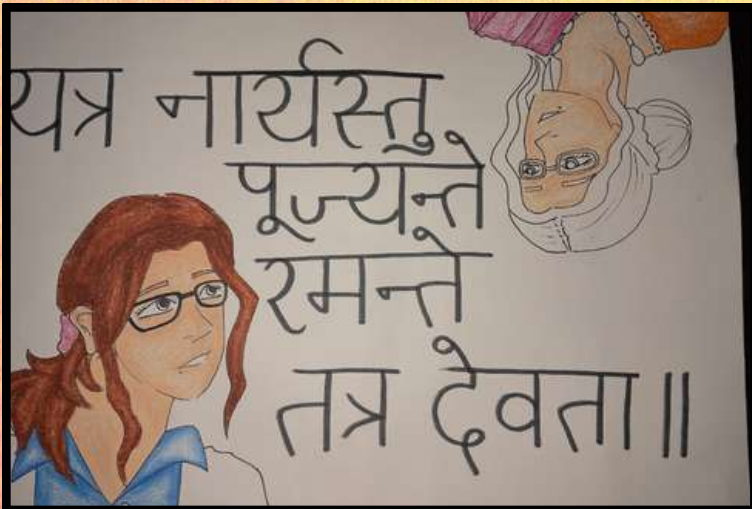 यत्र नार्यस्तु
पूज्यन्ते
रमन्ते
तत्र देवता॥